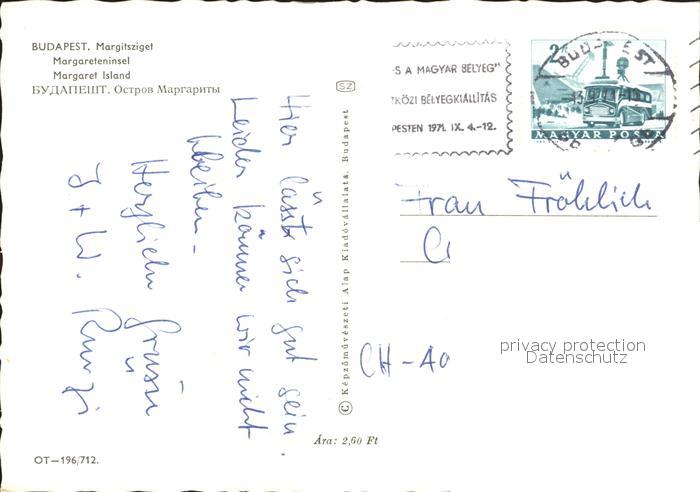 BUDAPEST. Margitsziget
Margareteninsel
Margaret Island
БУДАПЕШТ. Остров Маргариты
S A MAGYAR BÉLYEG"
KÖZI BÉLYEGKIÁLLÍTÁS
PESTEN 1971. IX. 4.-12.
2
BUDAPEST
MAGYAR POSTA
SZ
© Képzőművészeti Alap Kiadóvállalata, Budapest
Hier lässt sich gut sein
Leider können wir nicht
bleiben -
Herzliche Grüsse
J + W.
Frau Fröhlich
CH-40
privacy protection
Datenschutz
Ára: 2,60 Ft
OT—196/712.